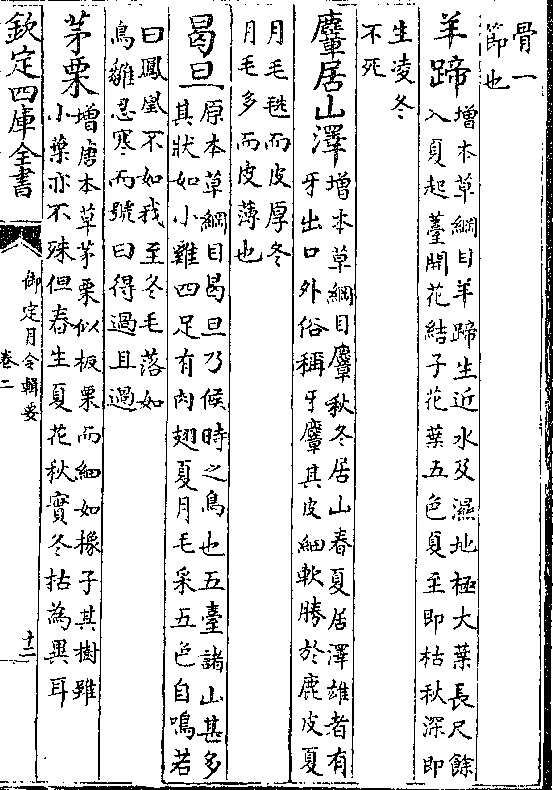 骨一
節也
羊蹄
增本草綱目羊蹄生近水及濕地極大葉長尺餘
入夏起薹開花結子花葉五色夏至即枯秋深即
生凌冬
不死
麞居山澤
增本草綱目麞秋冬居山春夏居澤雄者有
牙出口外俗稱牙麞其皮細軟勝於鹿皮夏
月毛毨而皮厚冬
月毛多而皮薄也
曷旦
原本草綱目曷旦乃候時之鳥也五臺諸山甚多
其狀如小雞四足有肉翅夏月毛采五色自鳴若
曰鳳凰不如我至冬毛落如
鳥雛忍寒而號曰得過且過
茅栗
增唐本草茅栗似板栗而細如橡子其樹雖
小葉亦不殊但春生夏花秋實冬枯為異耳
欽定四庫全書
御定月令輯要
卷二
十二